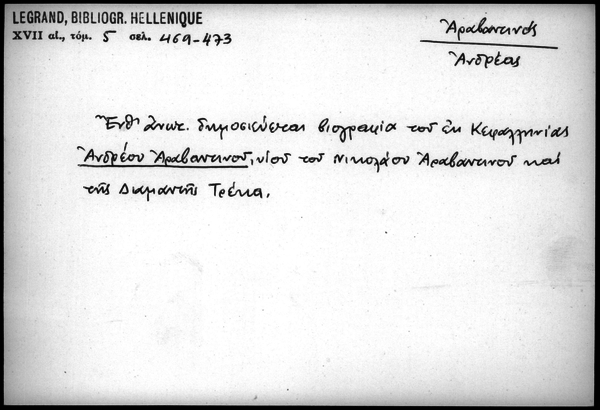 LEGRAND, BIBLIOGR. HELLENIQUE
XVII αἰ., τόμ. 5 σελ. 469-473
Ἀραβαντινός
Ἀνδρέας
Ἔνθ' ἀνωτ. δημοσιεύεται βιογραφία τοῦ ἐκ Κεφαλληνίας
Ἀνδρέου Ἀραβαντινοῦ, υἱοῦ τοῦ Νικολάου Ἀραβαντινοῦ καὶ
τῆς Διαμαντῆς Τρέκα.